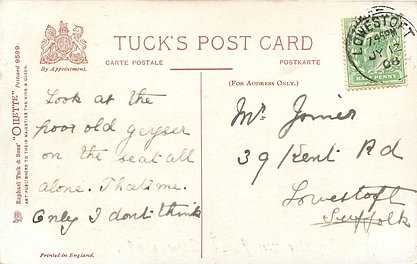 TUCK'S POST CARD
By Appointment.
CARTE POSTALE
POSTKARTE
(FOR ADDRESS ONLY.)
LOWESTOFT
JY 12
HALFPENNY
Raphael Tuck & Sons' "OILETTE" Postcard 9599.
ART PUBLISHERS TO THEIR MAJESTIES THE KING & QUEEN.
Look at the
poor old geyser
on the seat all
alone. Thats me.
Only I dont think
Mr.
39 Kent Rd
Lowestoft
Suffolk
Printed in England.